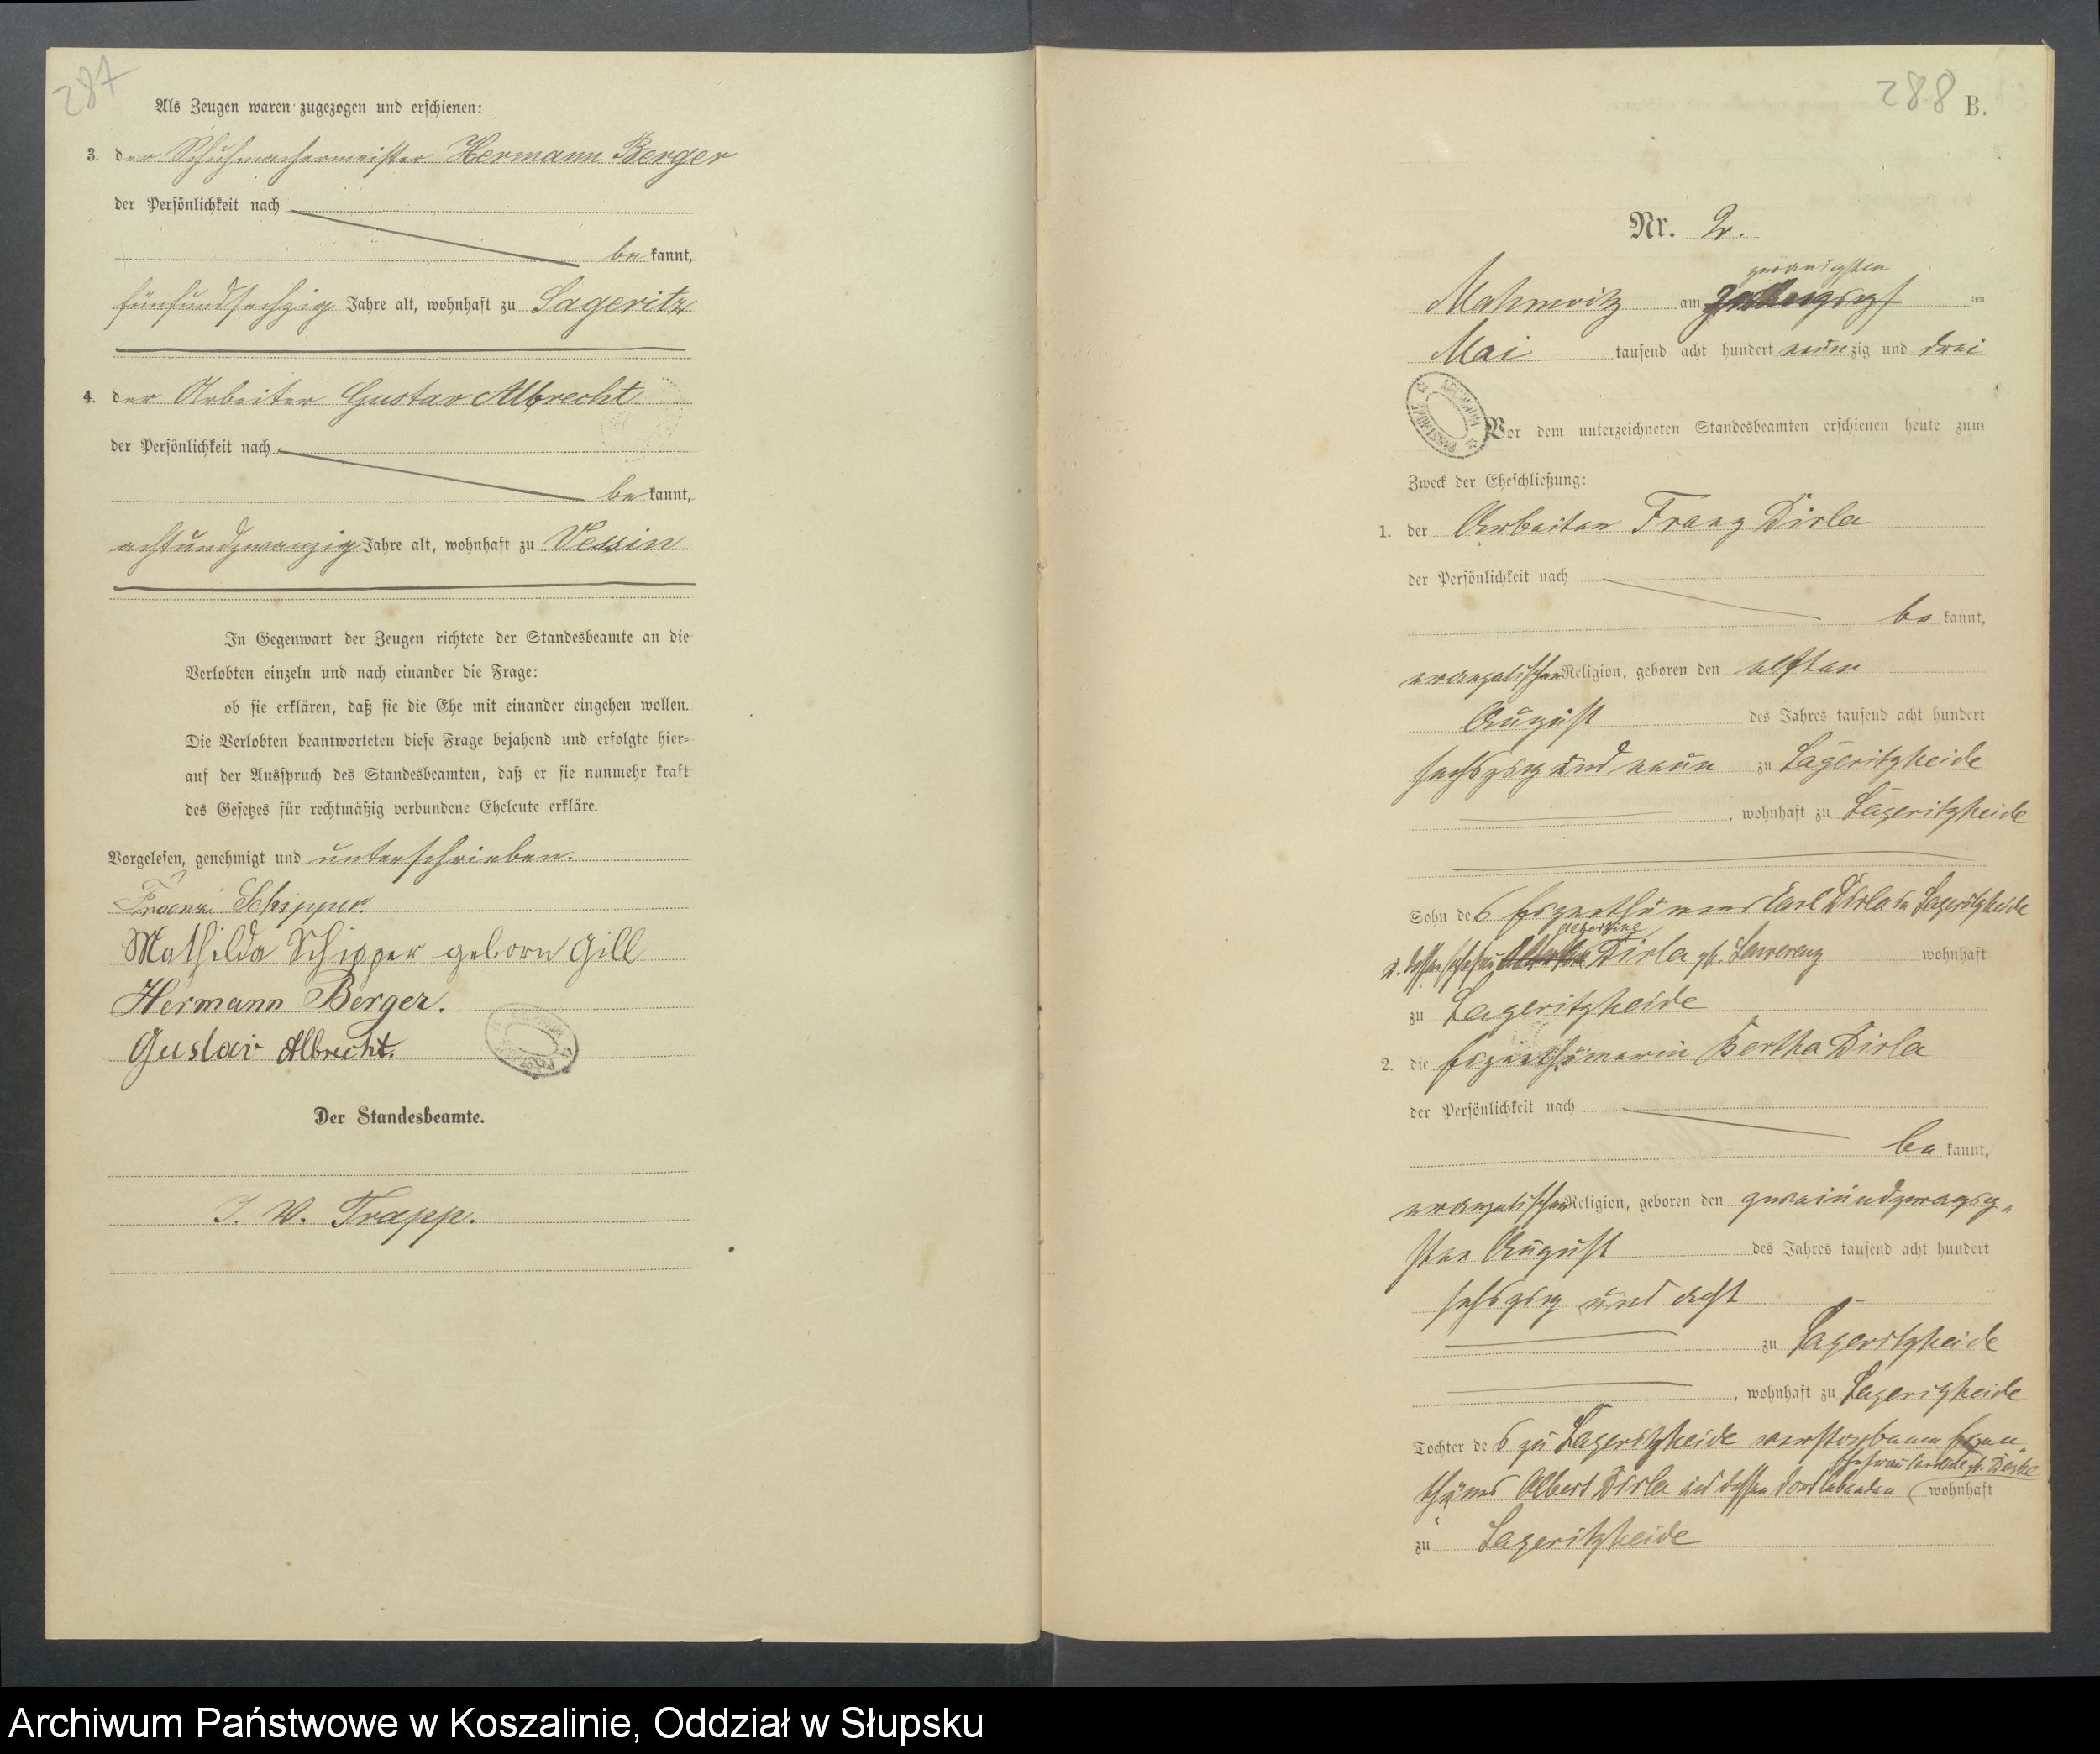 287
Als Zeugen waren zugezogen und erschienen:
3. der Schuhmachermeister Hermann Berger
der Persönlichkeit nach
be kannt,
fünfundsechzig Jahre alt, wohnhaft zu Sageritz
4. der Arbeiter Gustav Albrecht
der Persönlichkeit nach
be kannt,
achtundzwanzig Jahre alt, wohnhaft zu Vessin
In Gegenwart der Zeugen richtete der Standesbeamte an die
Verlobten einzeln und nach einander die Frage:
ob sie erklären, daß sie die Ehe mit einander eingehen wollen.
Die Verlobten beantworteten diese Frage bejahend und erfolgte hier-
auf der Ausspruch des Standesbeamten, daß er sie nunmehr kraft
des Gesetzes für rechtmäßig verbundene Eheleute erkläre.
Vorgelesen, genehmigt und unterschrieben.
Franz Schipper.
Mathilda Schipper geborn Gill
Hermann Berger.
Gustav Albrecht.
Der Standesbeamte.
I. V. Trapp.
288 B.
Nr. 2.
zwanzigsten
Mahnwitz am ten
Mai tausend acht hundert neunzig und drei
Vor dem unterzeichneten Standesbeamten erschienen heute zum
Zweck der Eheschließung:
1. der Arbeiter Franz Dirla
der Persönlichkeit nach
be kannt,
evangelischer Religion, geboren den elften
August des Jahres tausend acht hundert
sechszig und neun zu Lageritzheide
, wohnhaft zu Lageritzheide
Sohn des Eigenthümers Carl Dirla in Lageritzheide
Albertine
u. dessen Ehefrau Dirla gb. Lawrenz wohnhaft
zu Lageritzheide
2. die Eigenthümerin Bertha Dirla
der Persönlichkeit nach
be kannt,
evangelischer Religion, geboren den zweiundzwanzig-
sten August des Jahres tausend acht hundert
sechszig und acht
zu Lageritzheide
, wohnhaft zu Lageritzheide
Tochter des zu Lageritzheide verstorbenen Eigen-
Ehefrau gb.
thümers Albert Dirla und dessen dort lebenden wohnhaft
zu Lageritzheide
Archiwum Państwowe w Koszalinie, Oddział w Słupsku